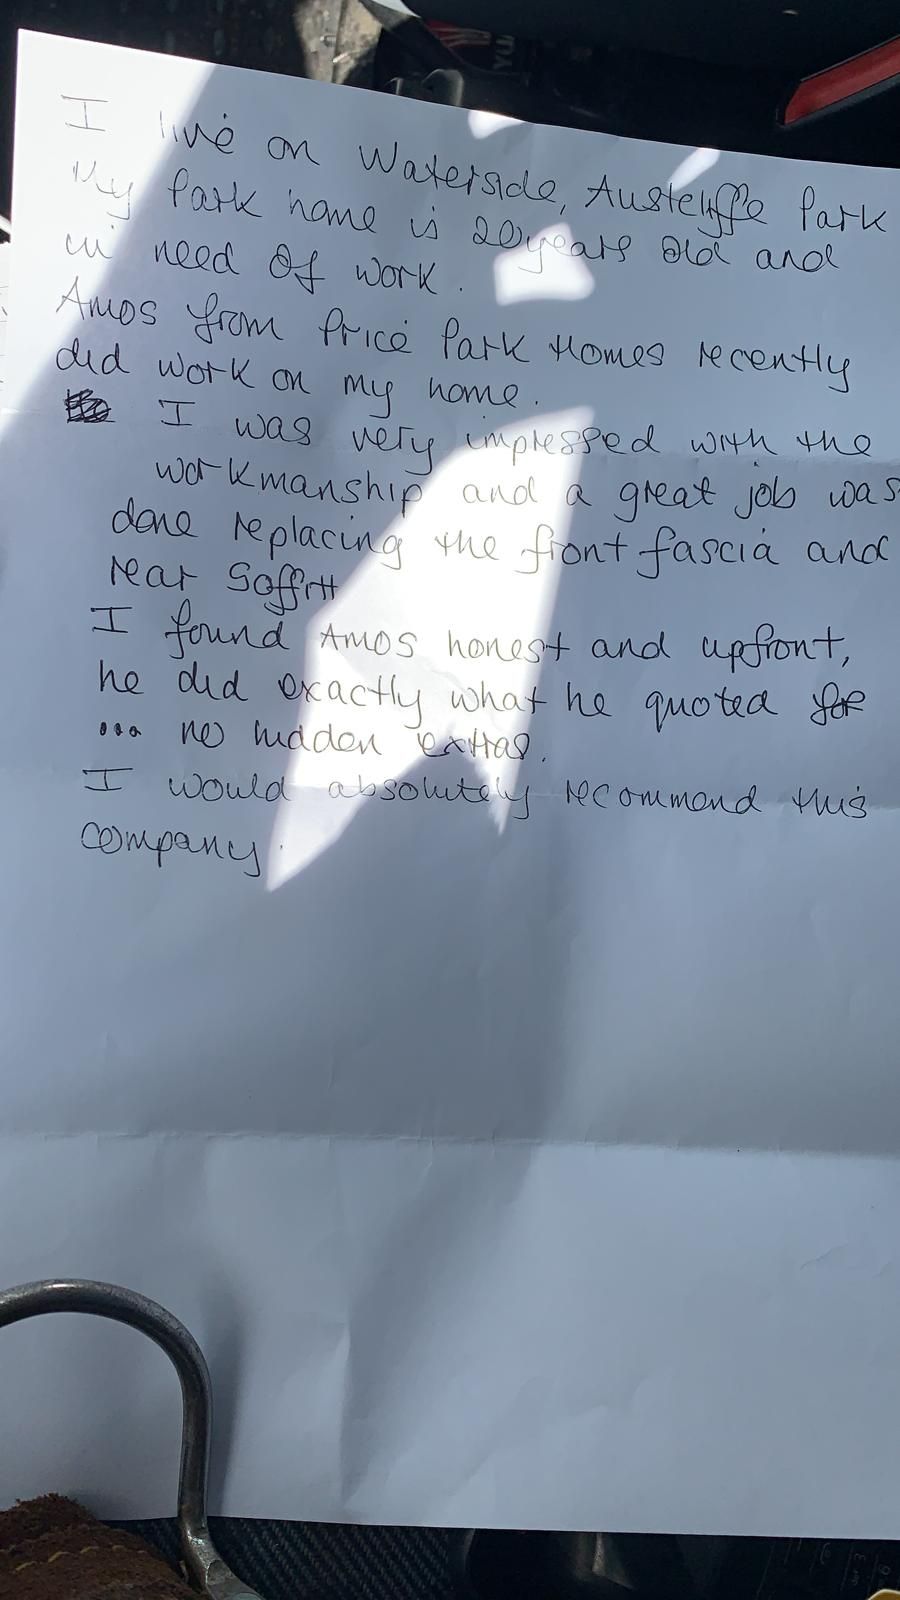 I live on Waterside, Austcliffe Park
My Park home is 20years old and
in need of work.
Amos from Price Park Homes recently
did work on my home.
I was very impressed with the
workmanship and a great job was
done replacing the front fascia and
rear Soffitt
I found Amos honest and upfront,
he did exactly what he quoted for
... no hidden extras.
I would absolutely recommend this
company.